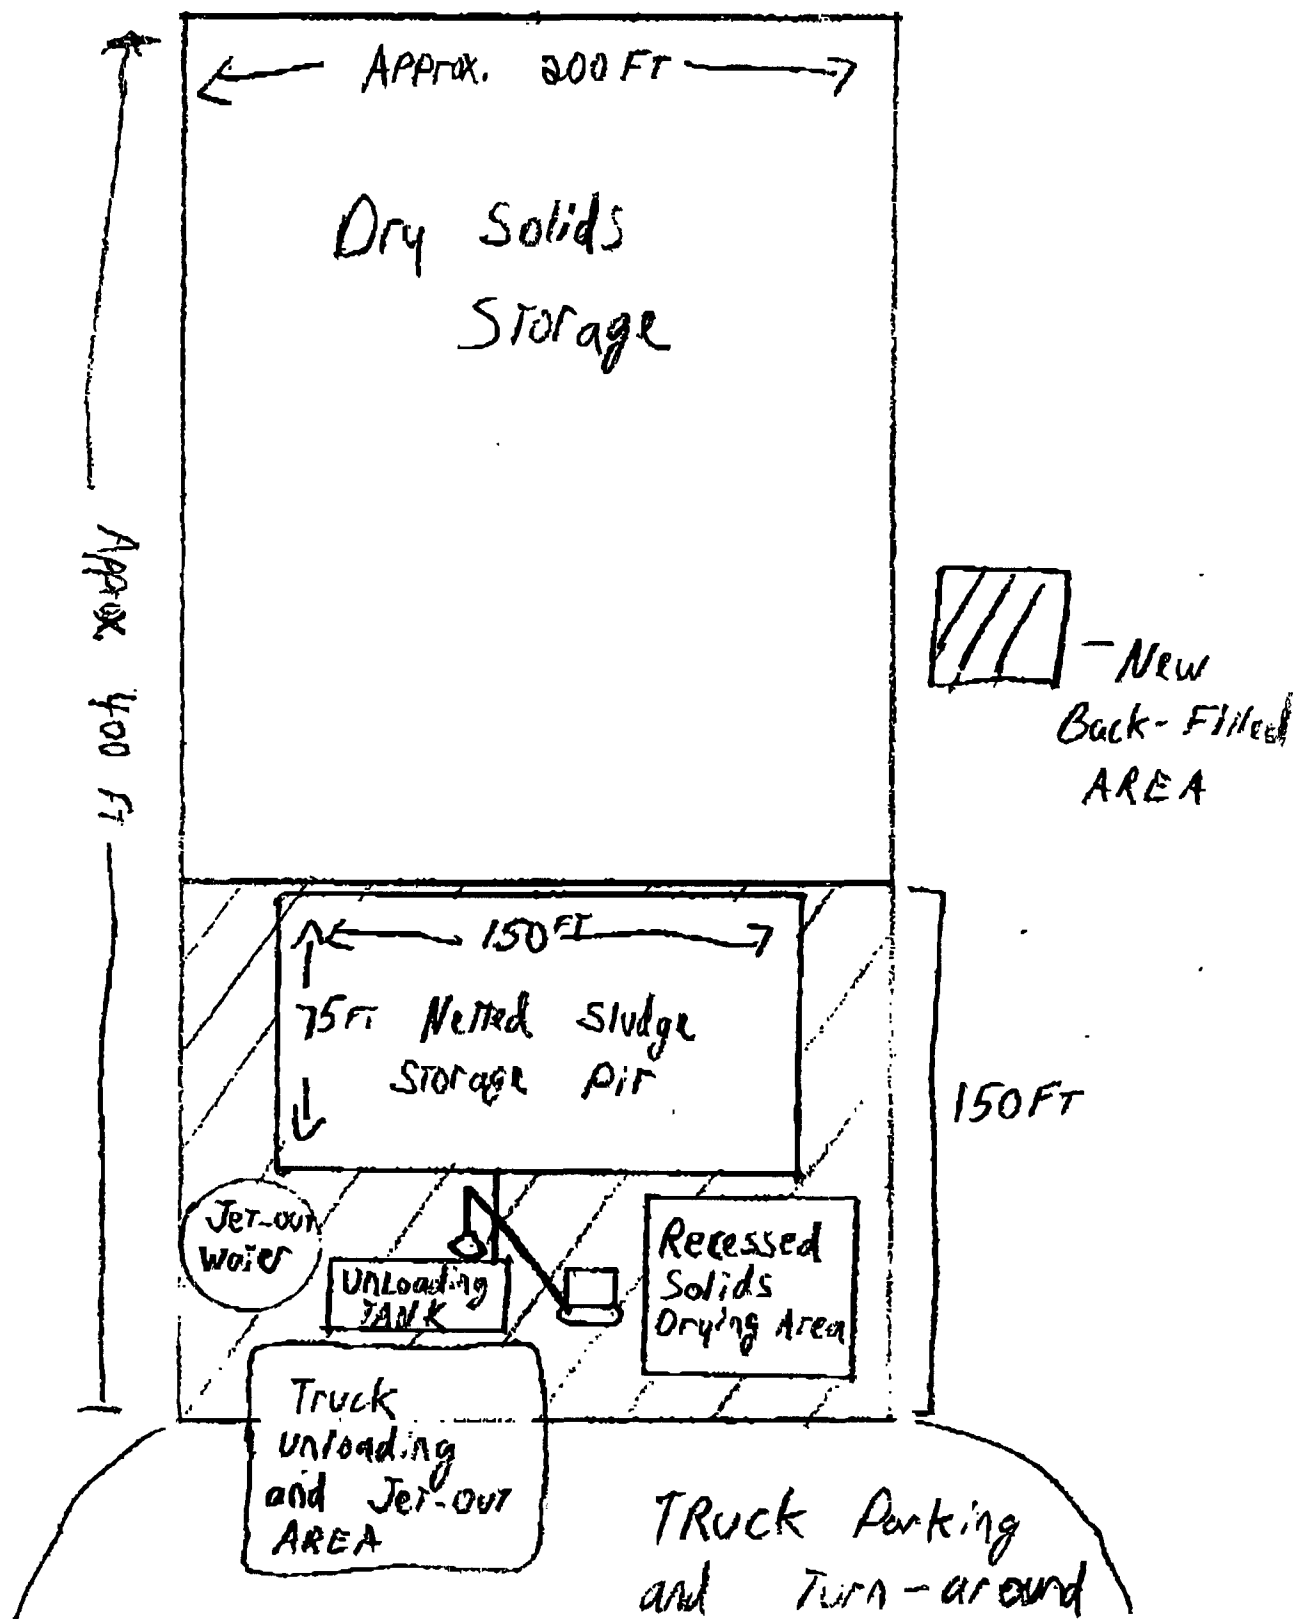 Approx. 200 FT
Dry Solids
Storage
Approx 400 FT
- New
Back-Filled
AREA
150 FT
75 FT Netted Sludge
Storage Pit
150 FT
Jet-out
Water
Unloading
TANK
Recessed
Solids
Drying Area
Truck
Unloading
and Jet-out
AREA
TRuck Parking
and Turn-around